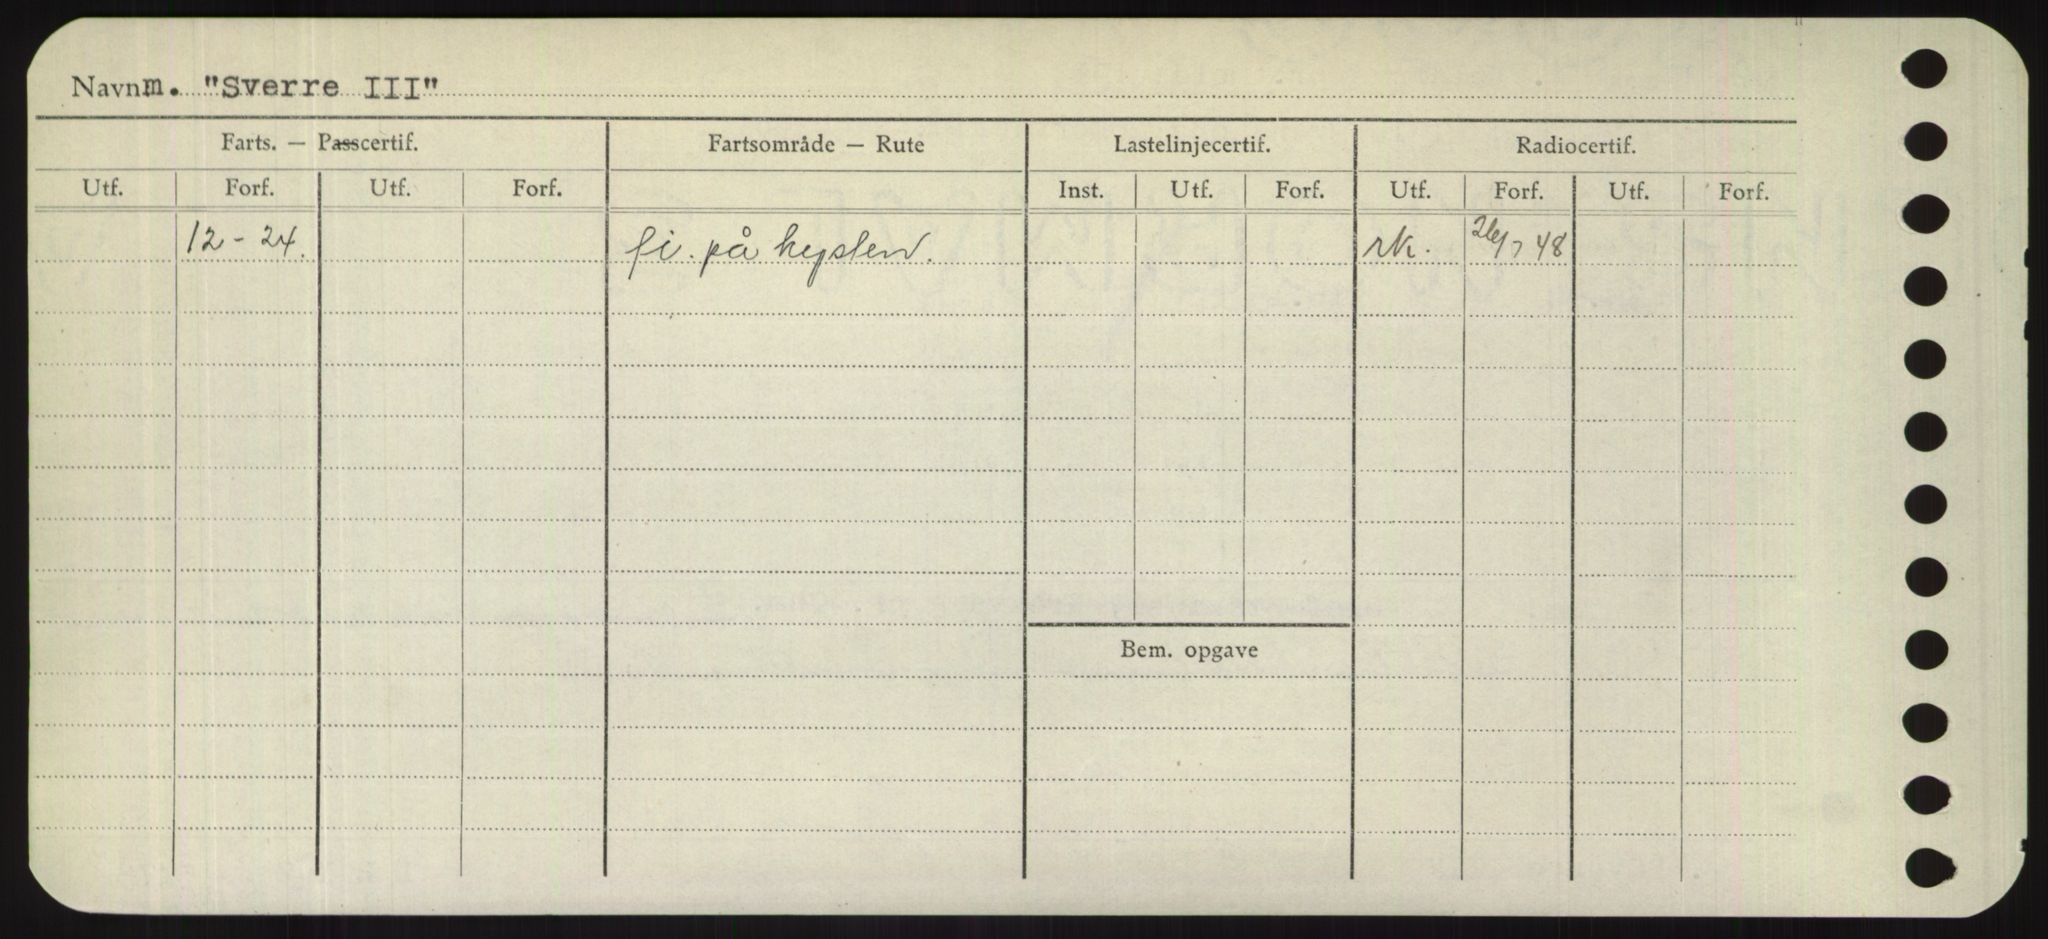 Navn m. "Sverre III"
Farts. — Passcertif. Fartsområde — Rute Lastelinjecertif. Radiocertif.
Utf. Forf. Utf. Forf. Inst. Utf. Forf. Utf. Forf. Utf. Forf.
12-24. fi. på kysten. rk. 26/7 48
Bem. opgave